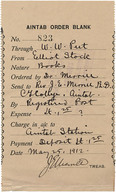 AINTAB ORDER BLANK
No. 823
Through W. W. Peet
From Elliot Stock
Nature Books
Ordered by Merrill
Send to Rev. J. E. Merrill, D.D.
College Aintab
By Registered Post
Expense
Charge in a/c to
Aintab Station
Payment Deposit
Date May 25, 1912
Merrill
TREAS.